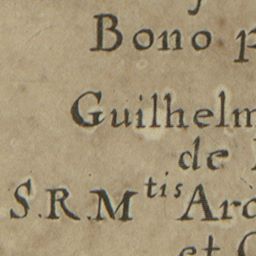 Bono p
Guilhelm
de
S.R.M^tis Arc
et